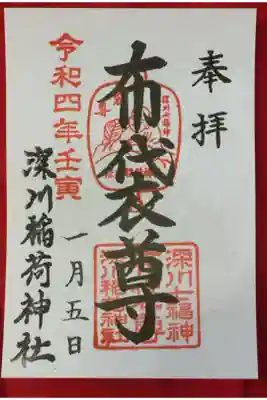 奉拝
布袋尊
深川七福神
深川稲荷神社
令和四年壬寅
一月五日
深川稲荷神社